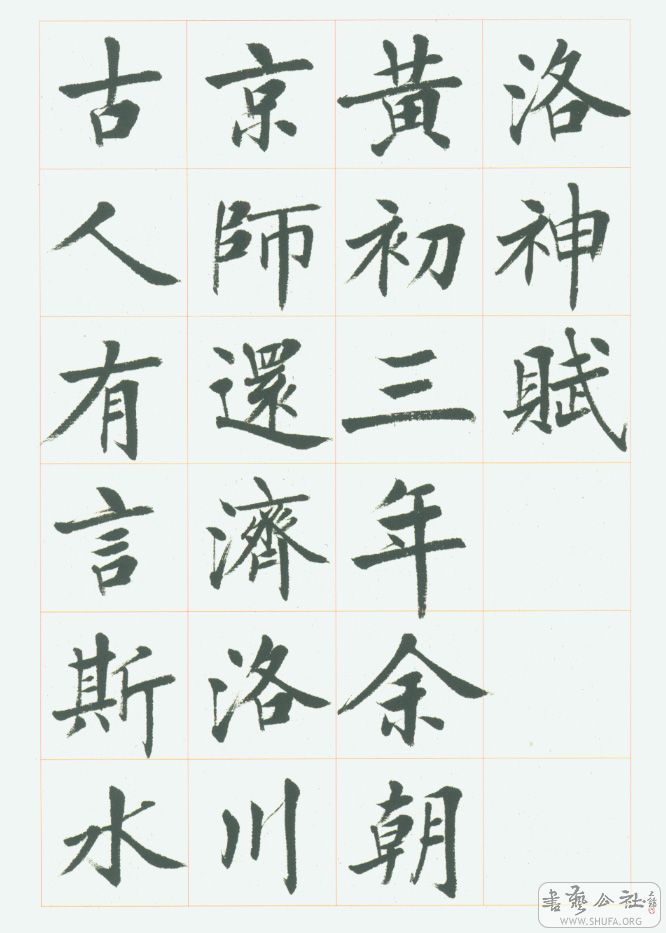 洛神賦
黃初三年余朝
京師還濟洛川
古人有言斯水
書藝公社
WWW.SHUFA.ORG